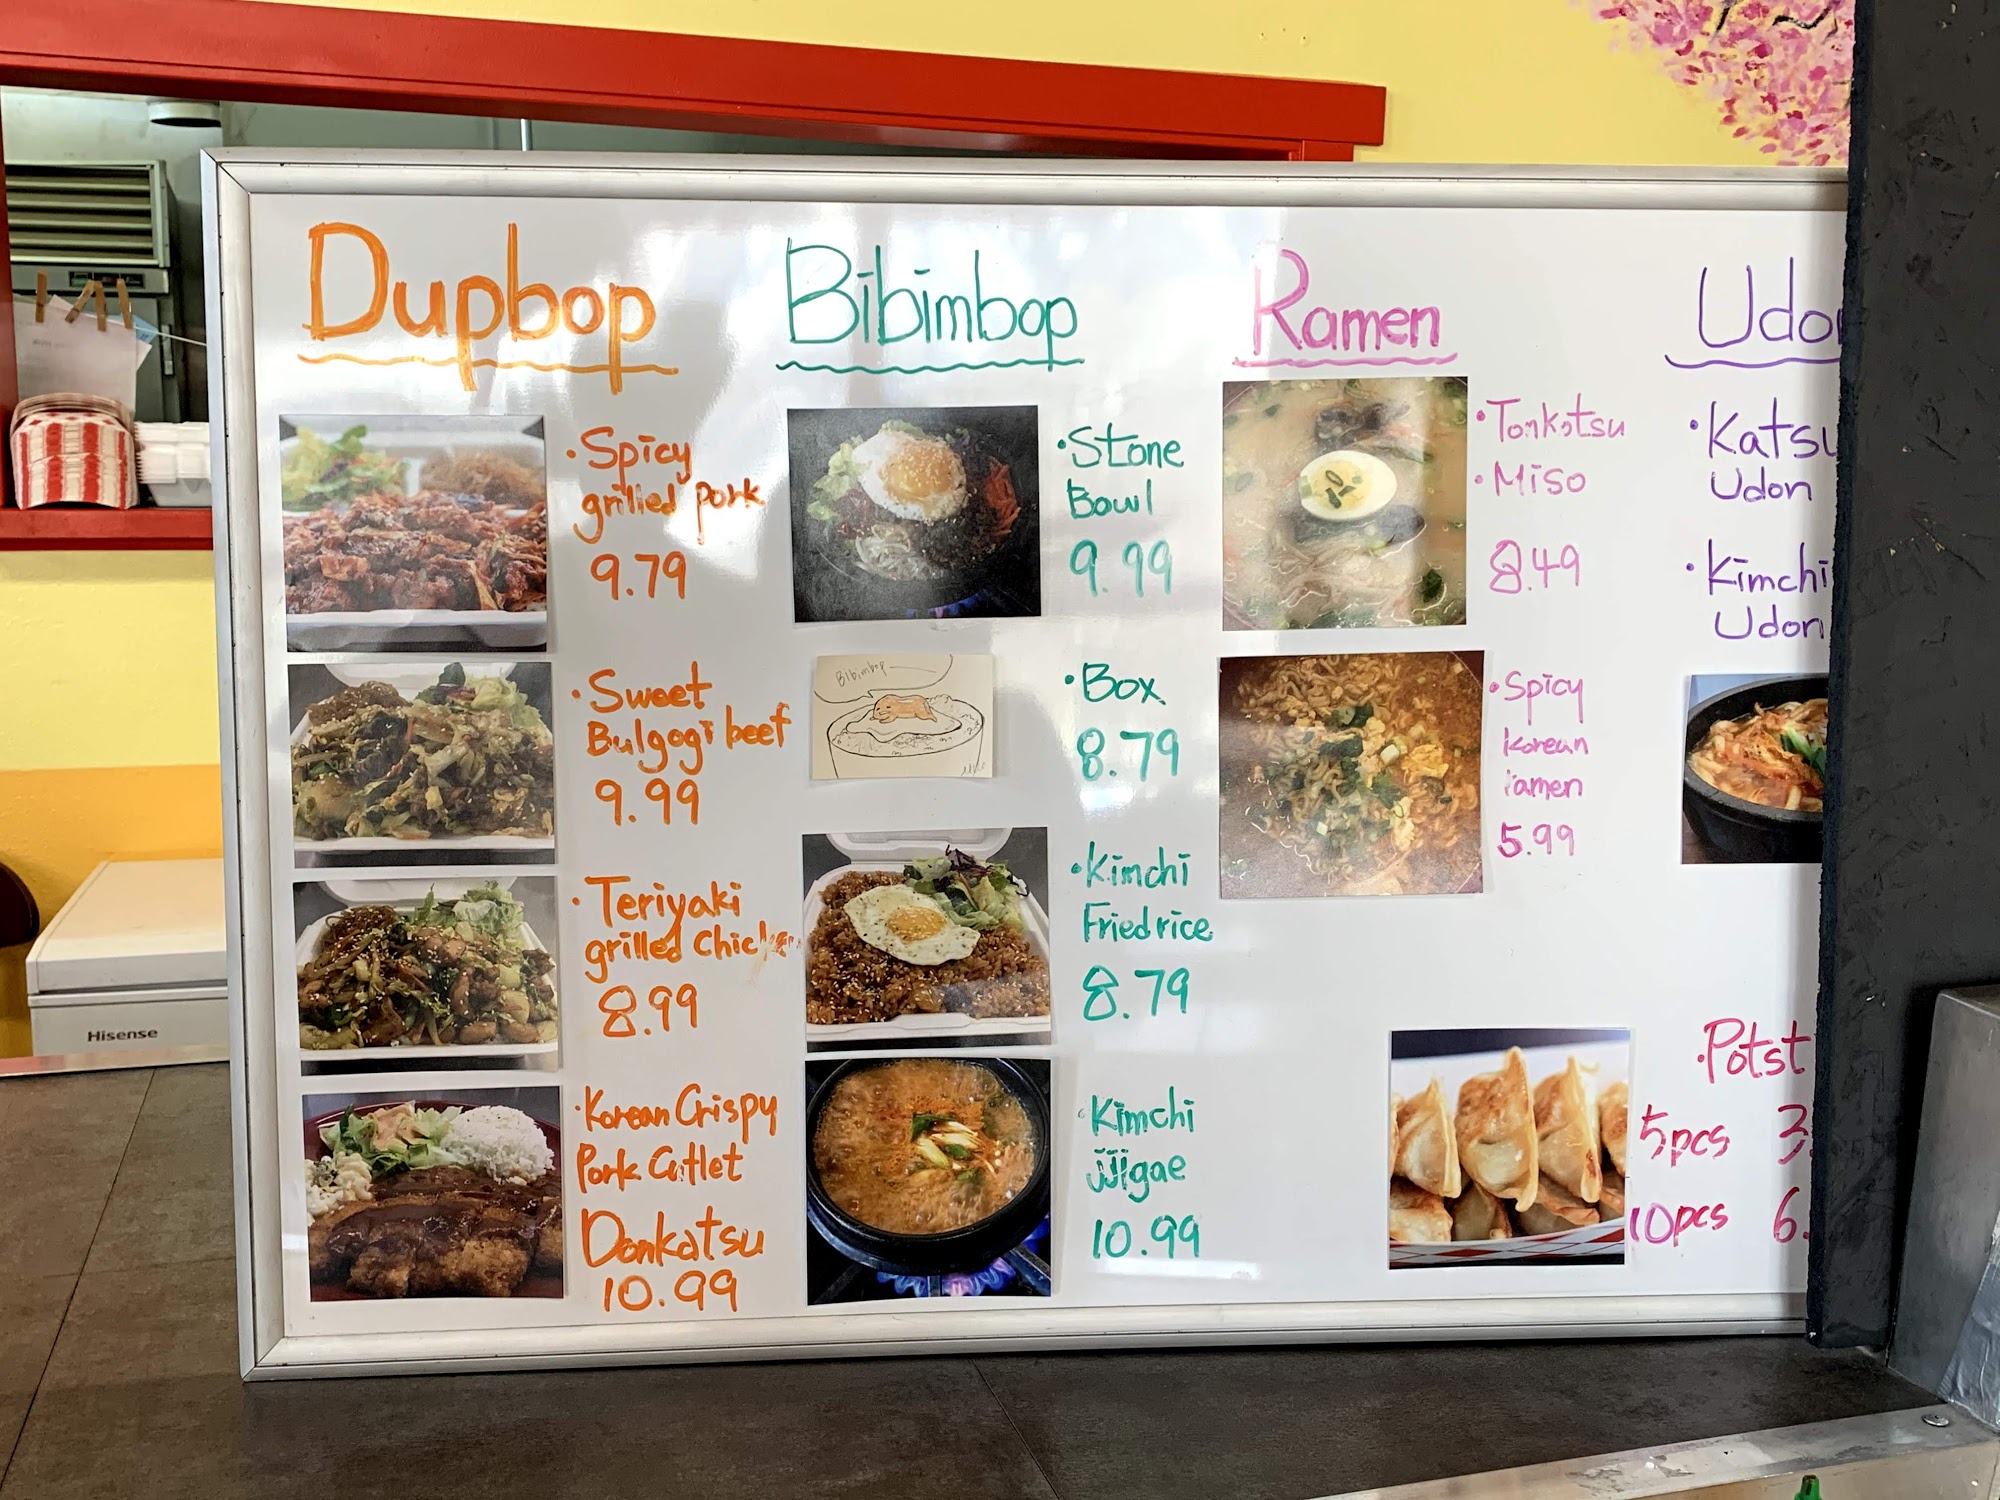 Dupbop
· Spicy
grilled pork
9.79
· Sweet
Bulgogi beef
9.99
· Teriyaki
grilled Chicken
8.99
· Korean Crispy
Pork Cutlet
Donkatsu
10.99
Bibimbop
· Stone
Bowl
9.99
Bibimbop
· Box
8.79
· Kimchi
Fried rice
8.79
· Kimchi
jjigae
10.99
Ramen
· Tonkotsu
· Miso
8.49
· Spicy
Korean
ramen
5.99
Udon
· Katsu
Udon
· Kimchi
Udon
· Potst
5pcs 3.
10pcs 6.
Hisense